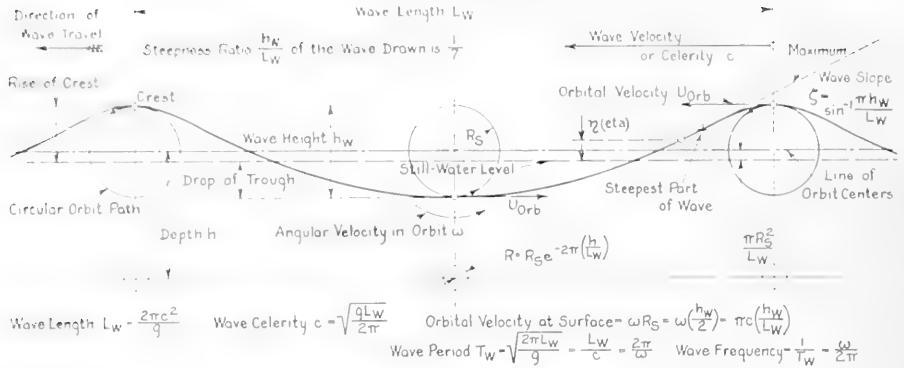 Direction of
Wave Travel
Wave Length L_W
Steepness Ratio h_W/L_W of the Wave Drawn is 1/7
Wave Velocity
or Celerity c
Maximum
Wave Slope
ζ = sin⁻¹ πh_W/L_W
Rise of Crest
Crest
Orbital Velocity U_Orb
Wave Height h_W
R_S
η(eta)
Still-Water Level
Drop of Trough
Steepest Part
of Wave
Line of
Orbit Centers
Circular Orbit Path
U_Orb
Depth h
Angular Velocity in Orbit ω
R = R_S e^-2π(h/L_W)
πR_S²/L_W
Wave Length L_W = 2πc²/g
Wave Celerity c = √(gL_W/2π)
Orbital Velocity at Surface = ωR_S = ω(h_W/2) = πc(h_W/L_W)
Wave Period T_W = √(2πL_W/g) = L_W/c = 2π/ω
Wave Frequency = 1/T_W = ω/2π